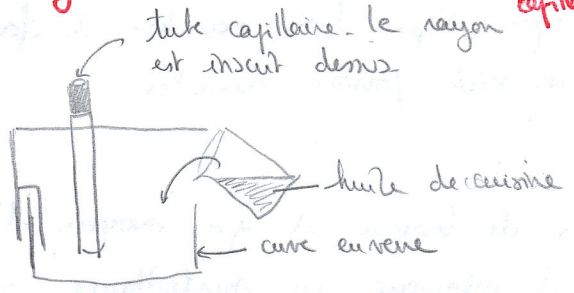 tube capillaire. le rayon
est inscrit dessus
huile de cuisine
cuve en verre